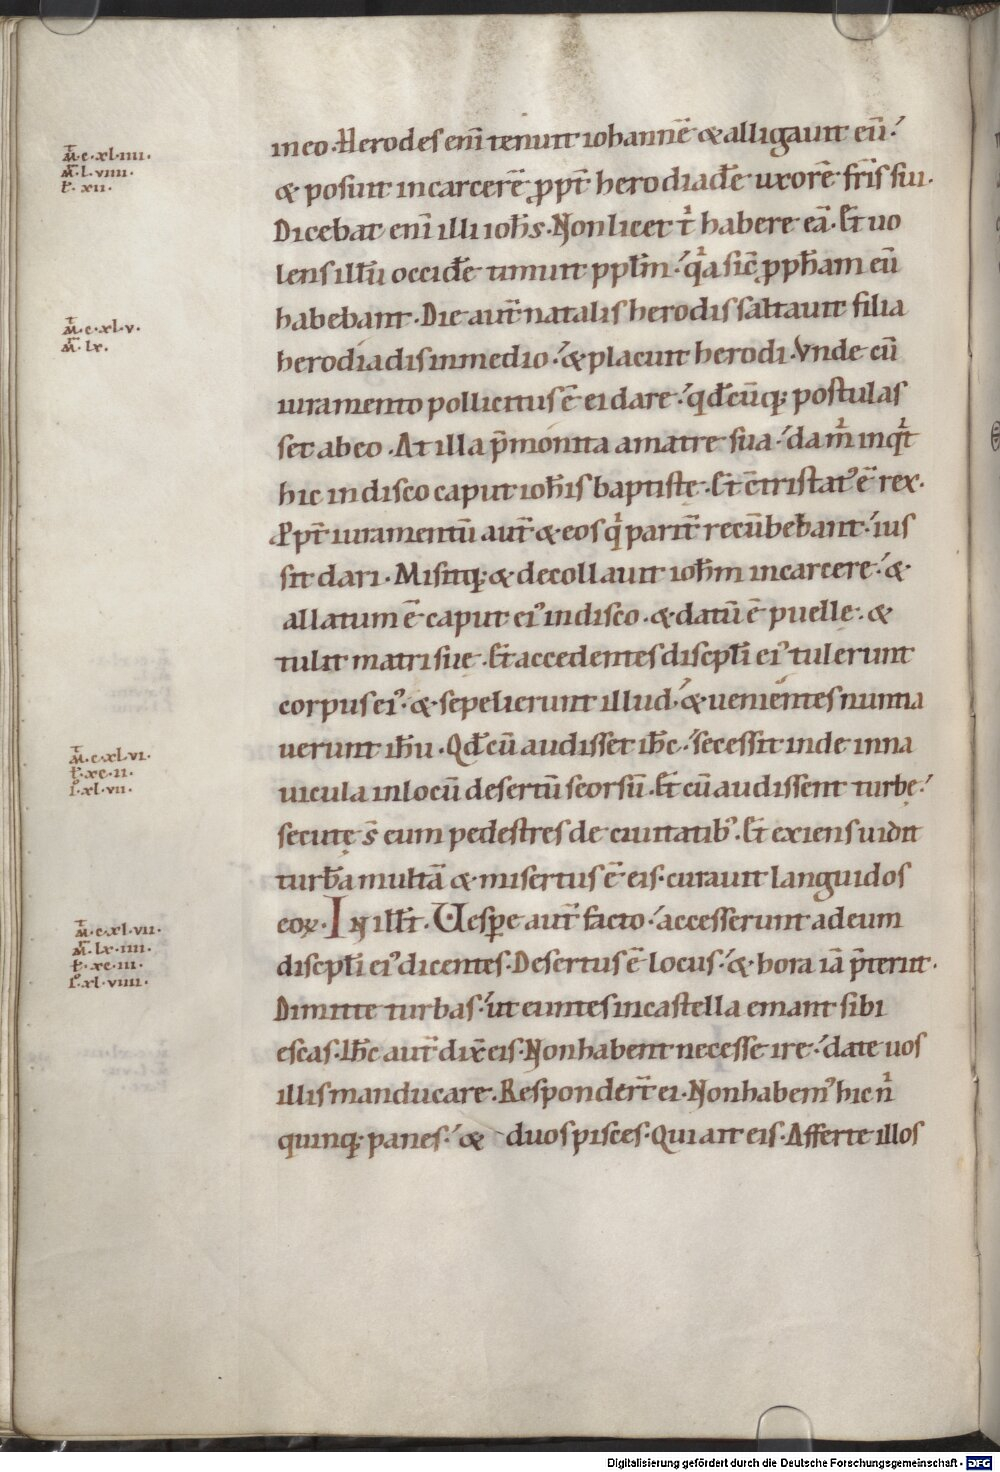 m̄. c. xl. iiii.
m̄. l. viiii.
l̄. xii.
in eo. Herodes eni̅ tenuit iohanne̅ & alligauit eu̅.
& posuit in carcere̅ ꝓpt̅ herodiade̅ uxore̅ fr̅is sui.
Dicebat eni̅ illi ioh̅s. Non licet t̍ habere ea̅. Et uo
lens illu̅ occide̅ timuit ppl̅m. q̍a sic̅ ꝓph̅am eu̅
habebant. Die aut̅ natalis herodis saltauit filia
m̄. c. xl. v.
m̄. lx.
herodiadis in medio. & placuit herodi. Vnde cu̅
iuramento pollicitus e̅ ei dare. qđcu̅q; postulas
set ab eo. At illa p̅monita a matre sua. da m̍ inq̍t
hic in disco caput ioh̅is baptistę. Et c̅tristat᾿ e̅ rex.
Ppt̅ iuramentu̅ aut̅ & eos q̍ parit̅ recu̅bebant. ius
sit dari. Misitq; & decollauit ioh̅m in carcere. &
allatum e̅ caput ei᾿ in disco. & datu̅ e̅ puelle. &
tulit matri suę. Et accedentes discpl̅i ei᾿ tulerunt
corpus ei᾿. & sepelierunt illud. & uenientes nuntia
uerunt ih̅u. Qđ cu̅ audisset ih̅c. secessit inde in na
m̄. c. xl. vi.
l̄. xc. ii.
i̊. xl. vii.
uicula in locu̅ desertu̅ seorsu̅. Et cu̅ audissent turbę.
secutę s̅ eum pedestres de ciuitatib᾿. Et exiens uidit
turba̅ multa̅ & misertus e̅ eis. curauit languidos
eoꝝ. In ill̅ t̅. Uespe̅ aut̅ facto. accesserunt ad eum
m̄. c. xl. vii.
m̄. lx. iiii.
l̄. xc. iii.
i̊. xl. viiii.
discpl̅i ei᾿ dicentes. Desertus e̅ locus. & hora ia̅ p̅teriit.
Dimitte turbas. ut euntes in castella emant sibi
escas. Ih̅c aut̅ dix̅ eis. Non habent necesse ire. date uos
illis manducare. Responder̅t ei. Non habem᾿ hic n̍
quinq; panes. & duos pisces. Qui ait eis. Afferte illos
Digitalisierung gefördert durch die Deutsche Forschungsgemeinschaft - DFG